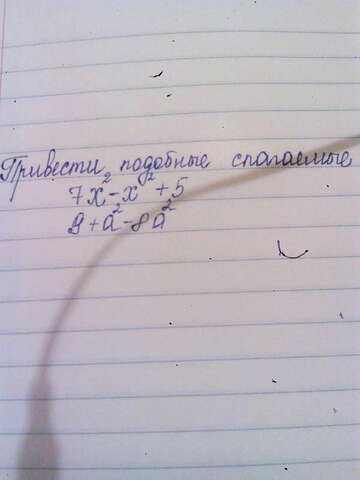 Привести подобные слагаемые
7x²-x²+5
9+a²-8a²